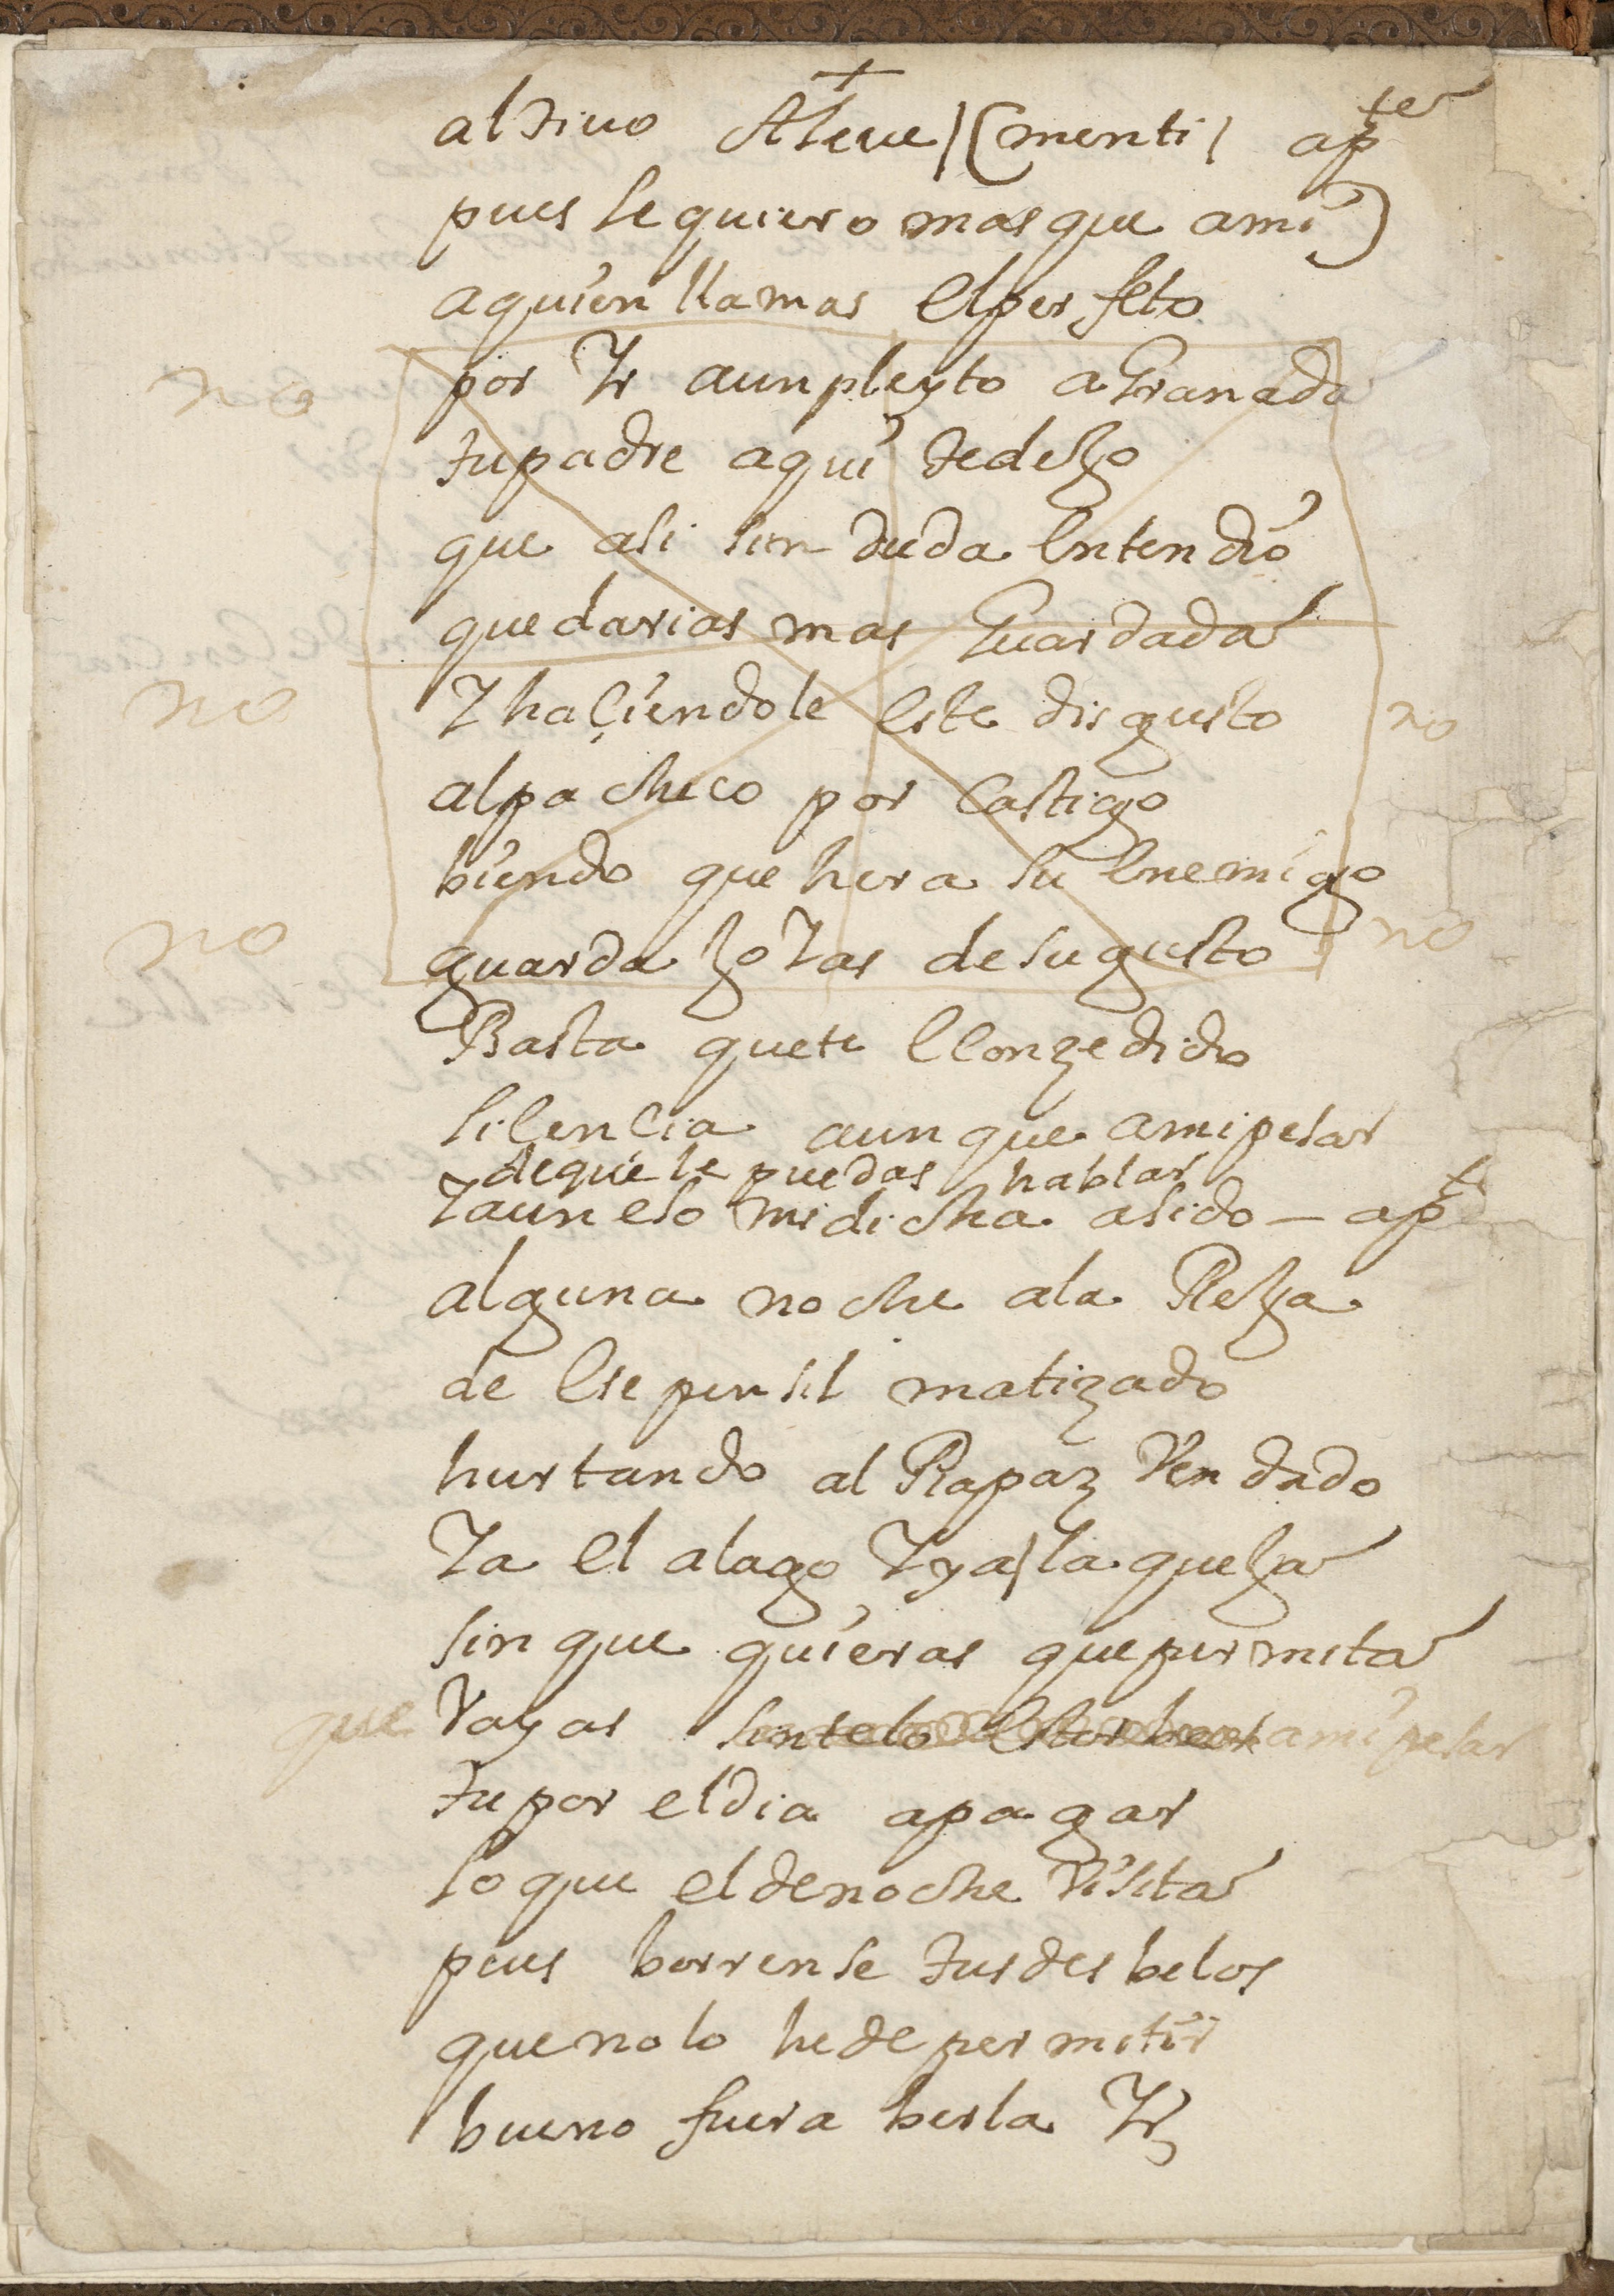 +
al tiuo Aleue / (menti / apte
pues le quiero mas que ami)
a quien llamas el perfeto
no por Yr a un pleyto a Granada
tu padre aqui te dexo
que asi sin duda entendio
quedarias mas Guardada
no Y haçiendole este disgusto no
al pacheco por castigo
biendo que hera su enemigo
no guarda joyas de su gusto no
Basta que te e conzedido
lilencia aunque a mi pesar
de que le puedas hablar
Y aun eso mi dicha a sido – apte
alguna noche a la Rexa
de ese pensil matizado
hurtando al Rapaz Vendado
Ya el alago Y ya / la quexa
sin que quieras que permita
que Vayas sin te lo estorbar a mi pesar
tu por el dia a pagar
lo que el de noche Visita
pues borrense tus desbelos
que no lo he de permitir
bueno fuera berla Yr